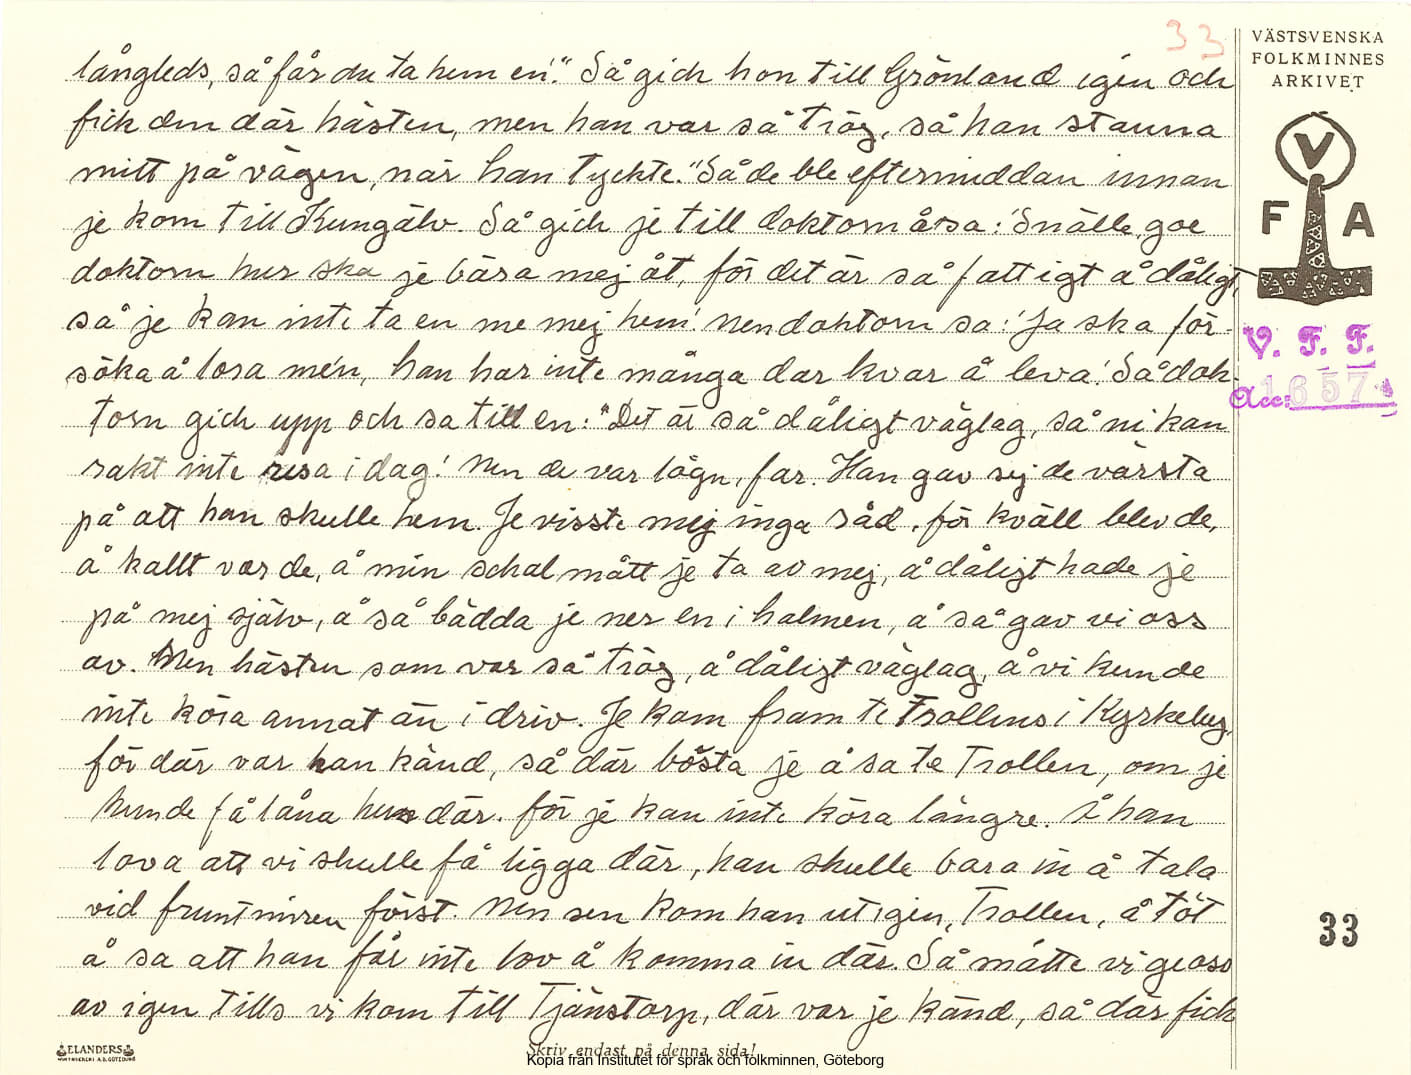 33
VÄSTSVENSKA
FOLKMINNES
ARKIVET
V
F A
V. F. F.
Acc: 1657
långleds, så får du ta hem en." Så gick hon till Grönland igen och
fick den där hästen, men han var så trög, så han stanna
mitt på vägen, när han tyckte. "Så de ble eftermiddan innan
je kom till Kungälv. Så gick je till doktorn å sa: 'Snälle, goe
doktorn hur ska je bära mej åt, för det är så fattigt å dåligt,
så je kan inte ta en me mej hem'. Men doktorn sa: 'Ja ska för-
söka å losa me'n, han har inte många dar kvar å leva'. Så dok-
torn gick upp och sa till en: "Det är så dåligt väglag, så ni kan
rakt inte resa i dag! Men de var lögn, far. Han gav sej de värsta
på att han skulle hem. Je visste mej inga råd, för kväll blev de,
å kallt var de, å min schal mått je ta av mej, å dåligt hade je
på mej själv, å så bädda je ner en i halmen, å så gav vi oss
av. Men hästen som var så trög, å dåligt väglag, å vi kunde
inte köra annat än i driv. Je kom fram te Trollens i Kyrkeby,
för där var han känd, så där bösta je å sa te Trollen, om je
kunde få låna hus där, för je kan inte köra längre. Å han
lova att vi skulle få ligga där, han skulle bara in å tala
vid fruntimren först. Men sen kom han ut igen, Trollen, å töt
å sa att han får inte lov å komma in där. Så måtte vi ge oss
av igen tills vi kom till Tjänstorp, där var je känd, så där fick
33
ELANDERS
Skriv endast på denna sida!
Kopia från Institutet för språk och folkminnen, Göteborg